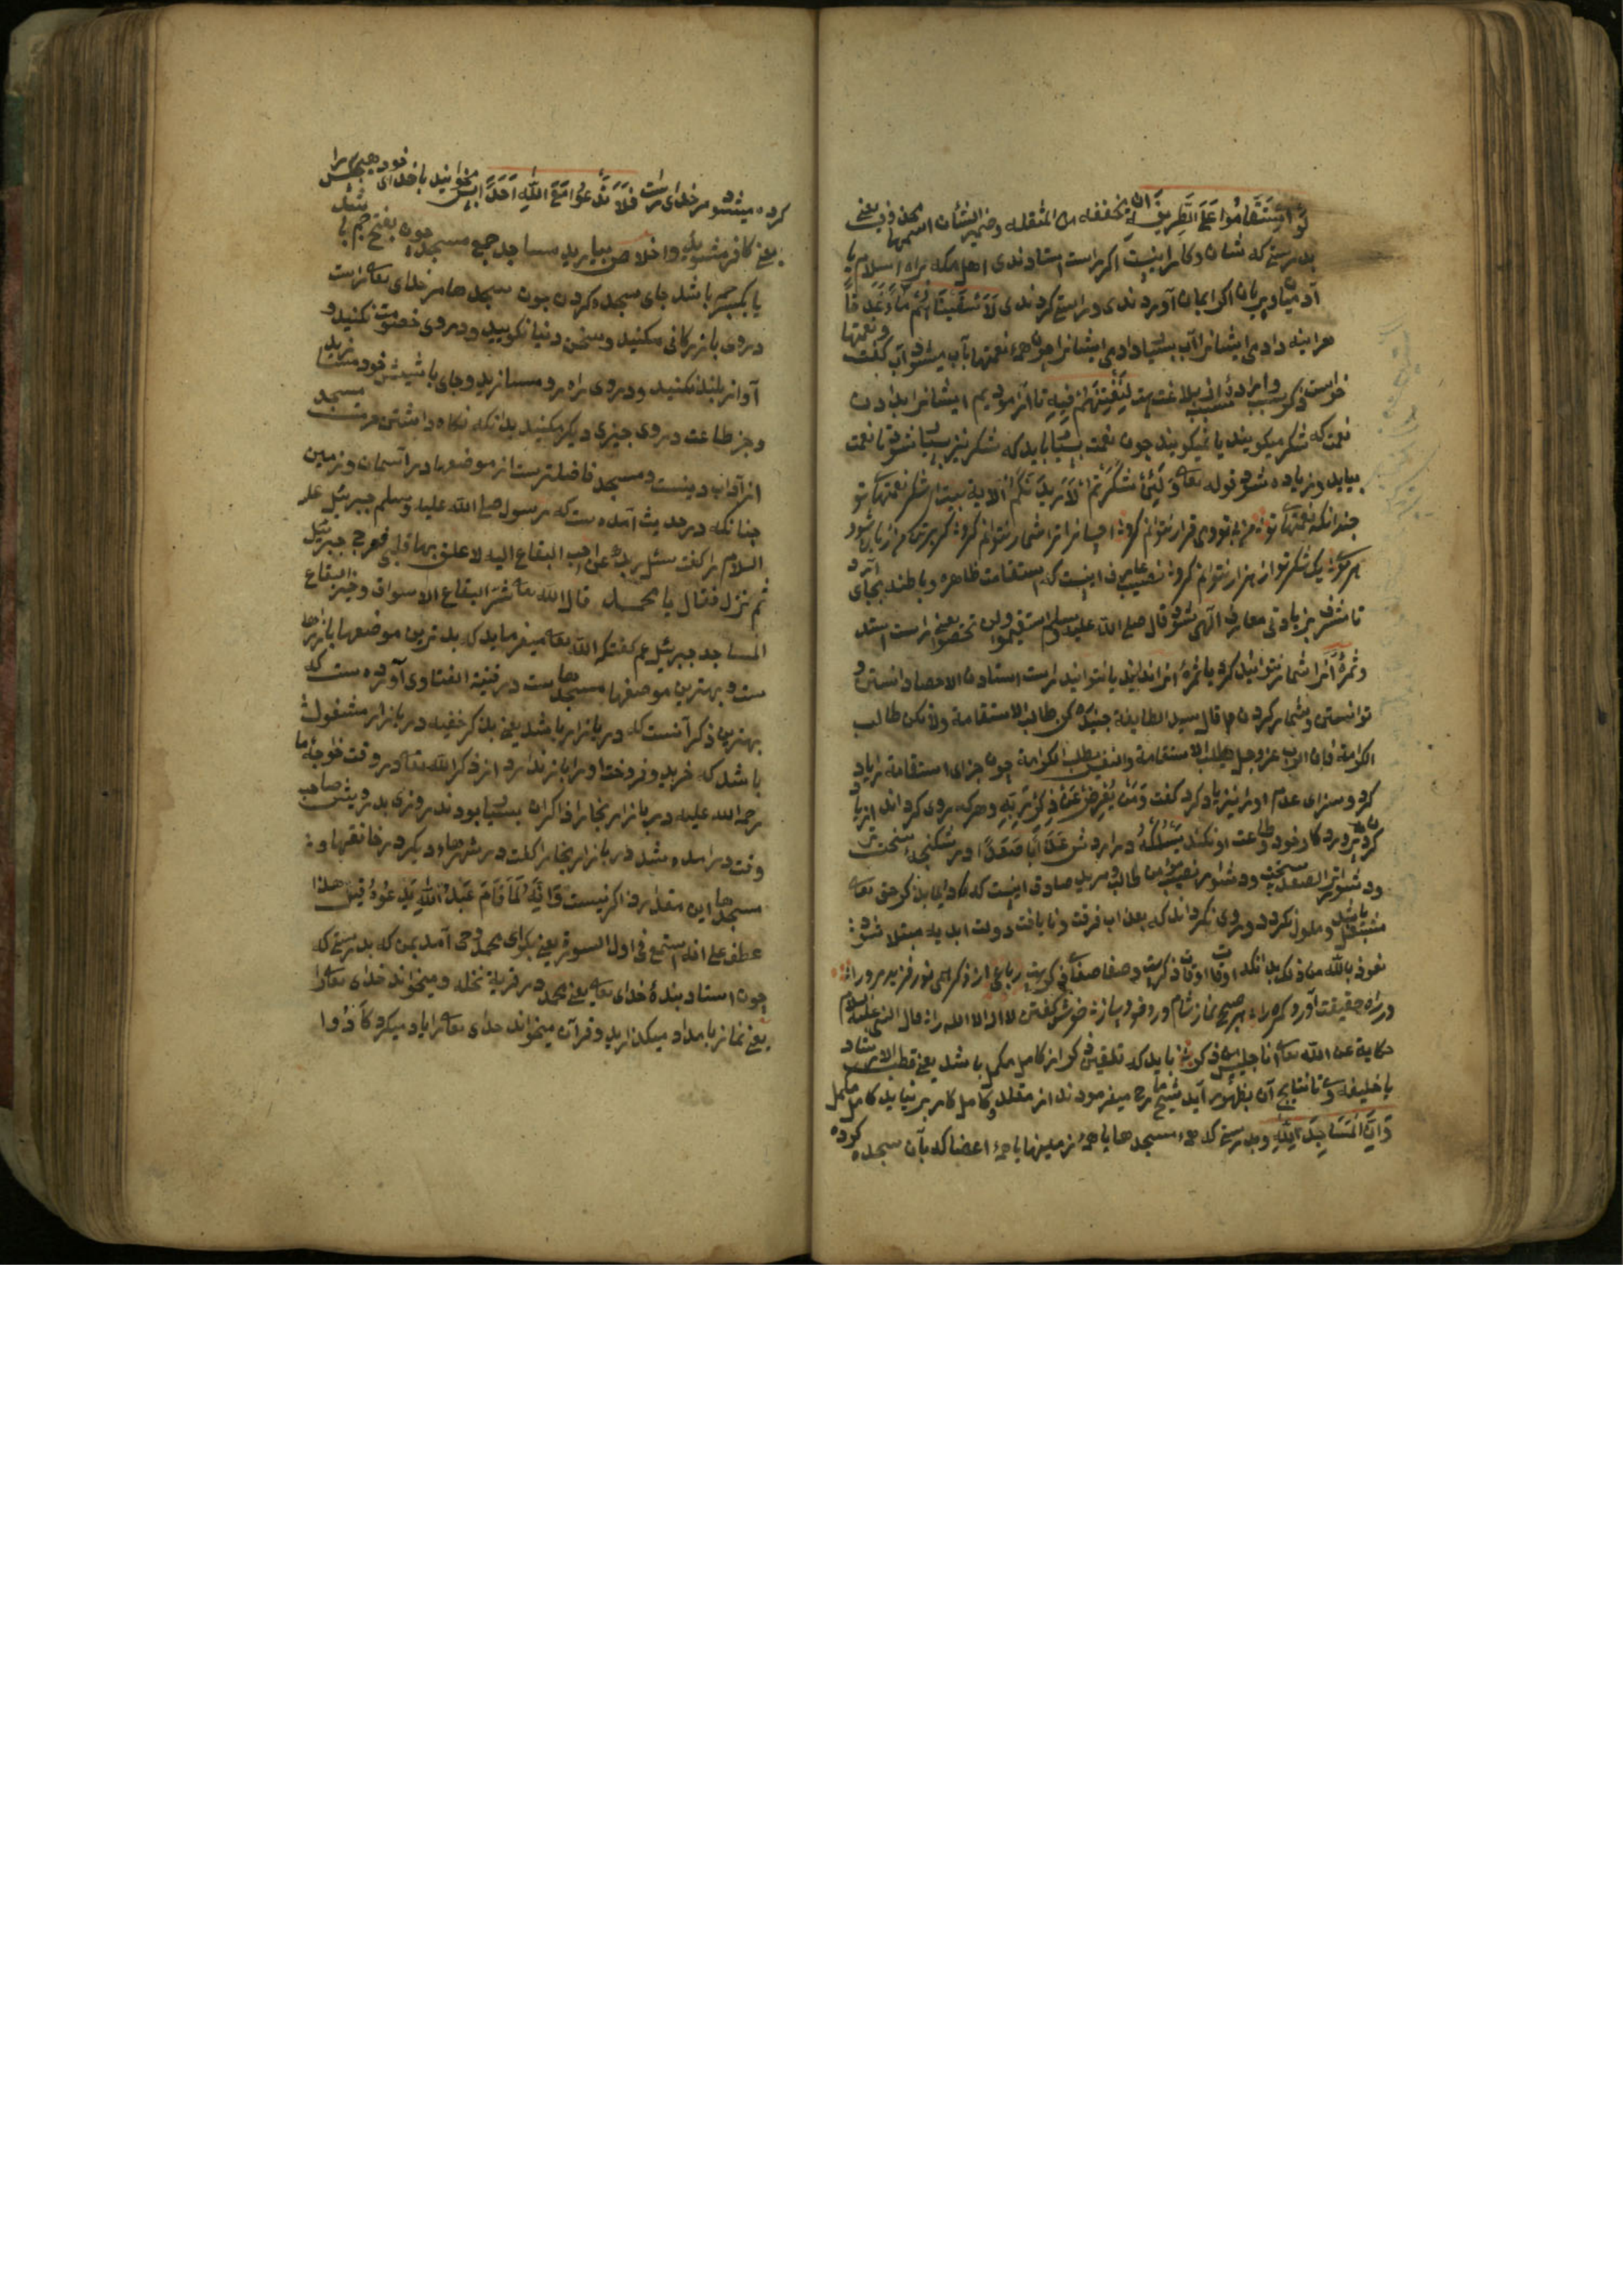 لَوِ اسْتَقَامُوا عَلَى الطَّرِيقَةِ ان مخففه من المثقله وضمير الشأن اسمها محذوف يعنى
بدرستى كه شان وكار اينست اكر راست استادندى اهل مكه براه اسلام يا
آدميان وپريان اكر ايمان آوردندى وراستى كردندى لَأَسْقَيْنَاهُمْ مَاءً غَدَقًا
هراينه دادمى ايشانرا آب بسيار دادمى ايشانرا چون همهٔ نعمتها بآب ميشود آب كفت ونعمتها
خواست ذكر سبب وارادهٔ مسبب بلاغت ست لِنَفْتِنَهُمْ فِيهِ تا آزموديم ايشانرا بدادن
نعمت كه شكر ميكويند يا نميكويند چون نعمت بسيار بايد كه شكر نيز بسيار شود تا نعمت
بيايد وزياده شود قوله تعالى وَلَئِنْ شَكَرْتُمْ لَأَزِيدَنَّكُمْ الاية بيت از شكر نعمتهاى تو
چندانكه نعمتهاى تو من بى تو دمى قرار نتوانم كرد احسان ترا شمار نتوانم كرد كر بر تن من زبان شود
هر موى يك شكر تو از هزار نتوانم كرد نصيب عارف اينست كه استقامت ظاهر وباطن بجاى آرد
تا مشرف بزيادتى معارف الهى شود قال صلى الله عليه وسلم استقيموا ولن تحصوا يعنى راست استيد
وثمرهٔ آنرا شمار نتوانيد كرد يا ثمرهٔ آنرا ندانيد يا نتوانيد راست استادن الاحصا دانستن و
توانستن وشمار كردن م قال سيد الطايفة جنيد كن طالب الاستقامة ولا تكن طالب
الكرامة فان الرب عز وجل يطلب الاستقامة والنفس يطلب الكرامة چون جزاى استقامة را ياد
كرد وسزاى عدم اورا نيز ياد كرد كفت وَمَنْ يُعْرِضْ عَنْ ذِكْرِ رَبِّهِ وهركه روى كرداند از ياد
كردن پروردكار خود وطاعت او نكند يَسْلُكْهُ درآردش عَذَابًا صَعَدًا در شكنجهٔ سخت تر
ودشوارتر الصعد سختى ودشوار نصيب مؤمن طالب ومريد صادق اينست كه دايم بذكر حق تعالى
مشتغل باشد وملول نكردد وروى نكرداند كه بعذاب فرقت ونايافت دولت ابديه مبتلا شود
نعوذ بالله من ذلك بدانكه اوقات
ورراه حقيقت آورد كمراه هر صبح ونماز شام ورد خود ساز خوش كفتن لا اله الا الله را قال النبى عليه السلام
حكاية عن الله تعالى انا جليس من ذكرنى بايد كه تلقين ذكر از كامل مكمل باشد يعنى قطب الارشاد
يا خليفهٔ وى تا نتايج آن بظهور آيد شيخ ما رح ميفرمودند از مقلد وكامل كار بر نيايد كامل مكمل
وَأَنَّ الْمَسَاجِدَ لِلَّهِ وبدرستى كه همهٔ مسجدها يا همهٔ زمينها يا همهٔ اعضا كه بآن سجده كرده
كرده ميشود مر خداى راست فَلَا تَدْعُوا مَعَ اللَّهِ أَحَدًا پس مخوانيد با خداى خود هيچكس را
يعنى كافر مشويد واخلاص بياريد مساجد جمع مسجد چون بفتح جيم باشد
يا بكسر جيم باشد جاى سجده كردن چون سجدها مر خداى تعالى راست
در وى بازركانى مكنيد وسخن دنيا نكوييد ودر وى خصومت نكنيد و
آواز بلند نكنيد ودر وى راه رو مسازيد وجاى باشيش خود مسازيد
وجز طاعت در وى چيزى ديكر مكنيد بدانكه نكاه داشتن حرمت مسجد
از آداب دينست ومسجد فاضلترست از موضعها در آسمان وزمين
چنانكه در حديث آمده ست كه رسول صلى الله عليه وسلم جبرئيل عليه
السلام را كفت سئل ربك عن احب البقاع اليه لا علق بها قلبى فعرج جبرئيل
ثم نزل فقال يا محمد قال الله تعالى شر البقاع الاسواق وخير البقاع
المساجد جبرئيل عم كفت كه الله تعالى ميفرمايد كه بدترين موضعها بازارها
ست وبهترين موضعها مسجدهاست در قنية الفتاوى آورده ست كه
بهترين ذكر آنست كه در بازار باشد يعنى بذكر خفيه در بازار مشغول
باشد كه خريد وفروخت اورا باز ندارد از ذكر الله تعالى در وقت خواجهٔ ما
رحمة الله عليه در بازار بخارا ذاكران بسيار بودند روزى درويش صاحب
وقت درامده شد در بازار بخارا كفت در شهرهاء ديكر در خانقهها و
مسجدها اين مقدار ذاكر نيست وَأَنَّهُ لَمَّا قَامَ عَبْدُ اللَّهِ يَدْعُوهُ قيل هذا
عطف على انه استمع فى اول السورة يعنى بكو اى محمد وحى آمد بمن كه بدرستى كه
چون استاد بندهٔ خداى تعالى يعنى محمد در قريهٔ نخله وميخواند خداى تعالى را
يعنى نماز بامداد ميكذاريد وقرآن ميخواند خداى تعالى را ياد ميكرد كَادُوا